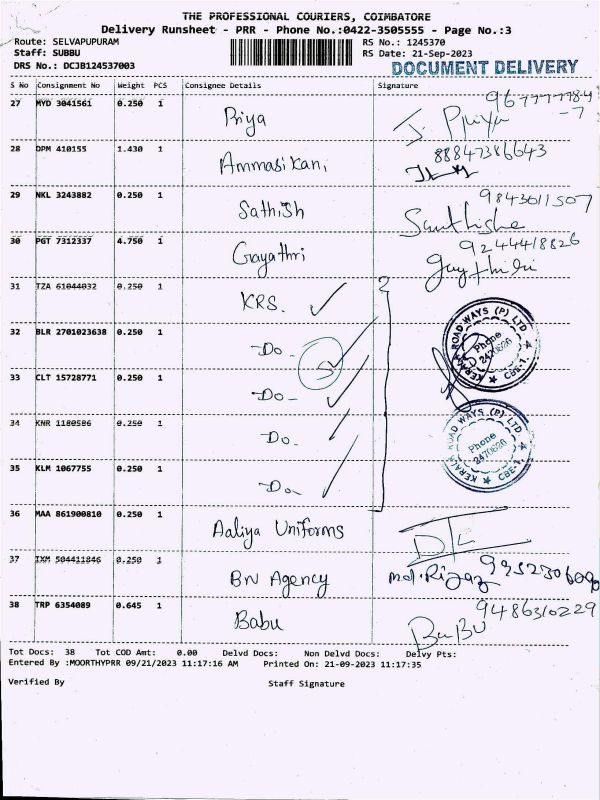 THE PROFESSIONAL COURIERS, COIMBATORE
Delivery Runsheet - PRR - Phone No.:0422-3505555 - Page No.:3
Route: SELVAPUPURAM RS No.: 1245370
Staff: SUBBU RS Date: 21-Sep-2023
DRS No.: DCJB124537003 DOCUMENT DELIVERY
S No Consignment No Weight PCS Consignee Details Signature
27 MYD 3041561 0.250 1 Priya J. Priya
28 DPM 410155 1.430 1 Ammasikani 88847386643
29 NKL 3243882 0.250 1 Sathish 9843611507
30 PGT 7312337 4.750 1 Gayathri 9244418826
31 TZA 61044032 0.250 1 KRS.
32 BLR 2701023638 0.250 1 Do- 5
33 CLT 15728771 0.250 1 Do-
34 KNR 1180586 0.250 1 Do.
35 KLM 1067755 0.250 1 Do-
KERALA ROAD WAYS (P) LTD CBE-1. Phone 2470820
KERALA ROAD WAYS (P) LTD CBE-1. Phone 2470820
36 MAA 861900810 0.250 1 Aaliya Uniforms
37 IXM 504411846 0.250 1 BN Agency md.Rijaz
38 TRP 6354089 0.645 1 Babu BaBU 9486310229
Tot Docs: 38 Tot COD Amt: 0.00 Delvd Docs: Non Delvd Docs: Delvy Pts:
Entered By :MOORTHYPRR 09/21/2023 11:17:16 AM Printed On: 21-09-2023 11:17:35
Verified By Staff Signature